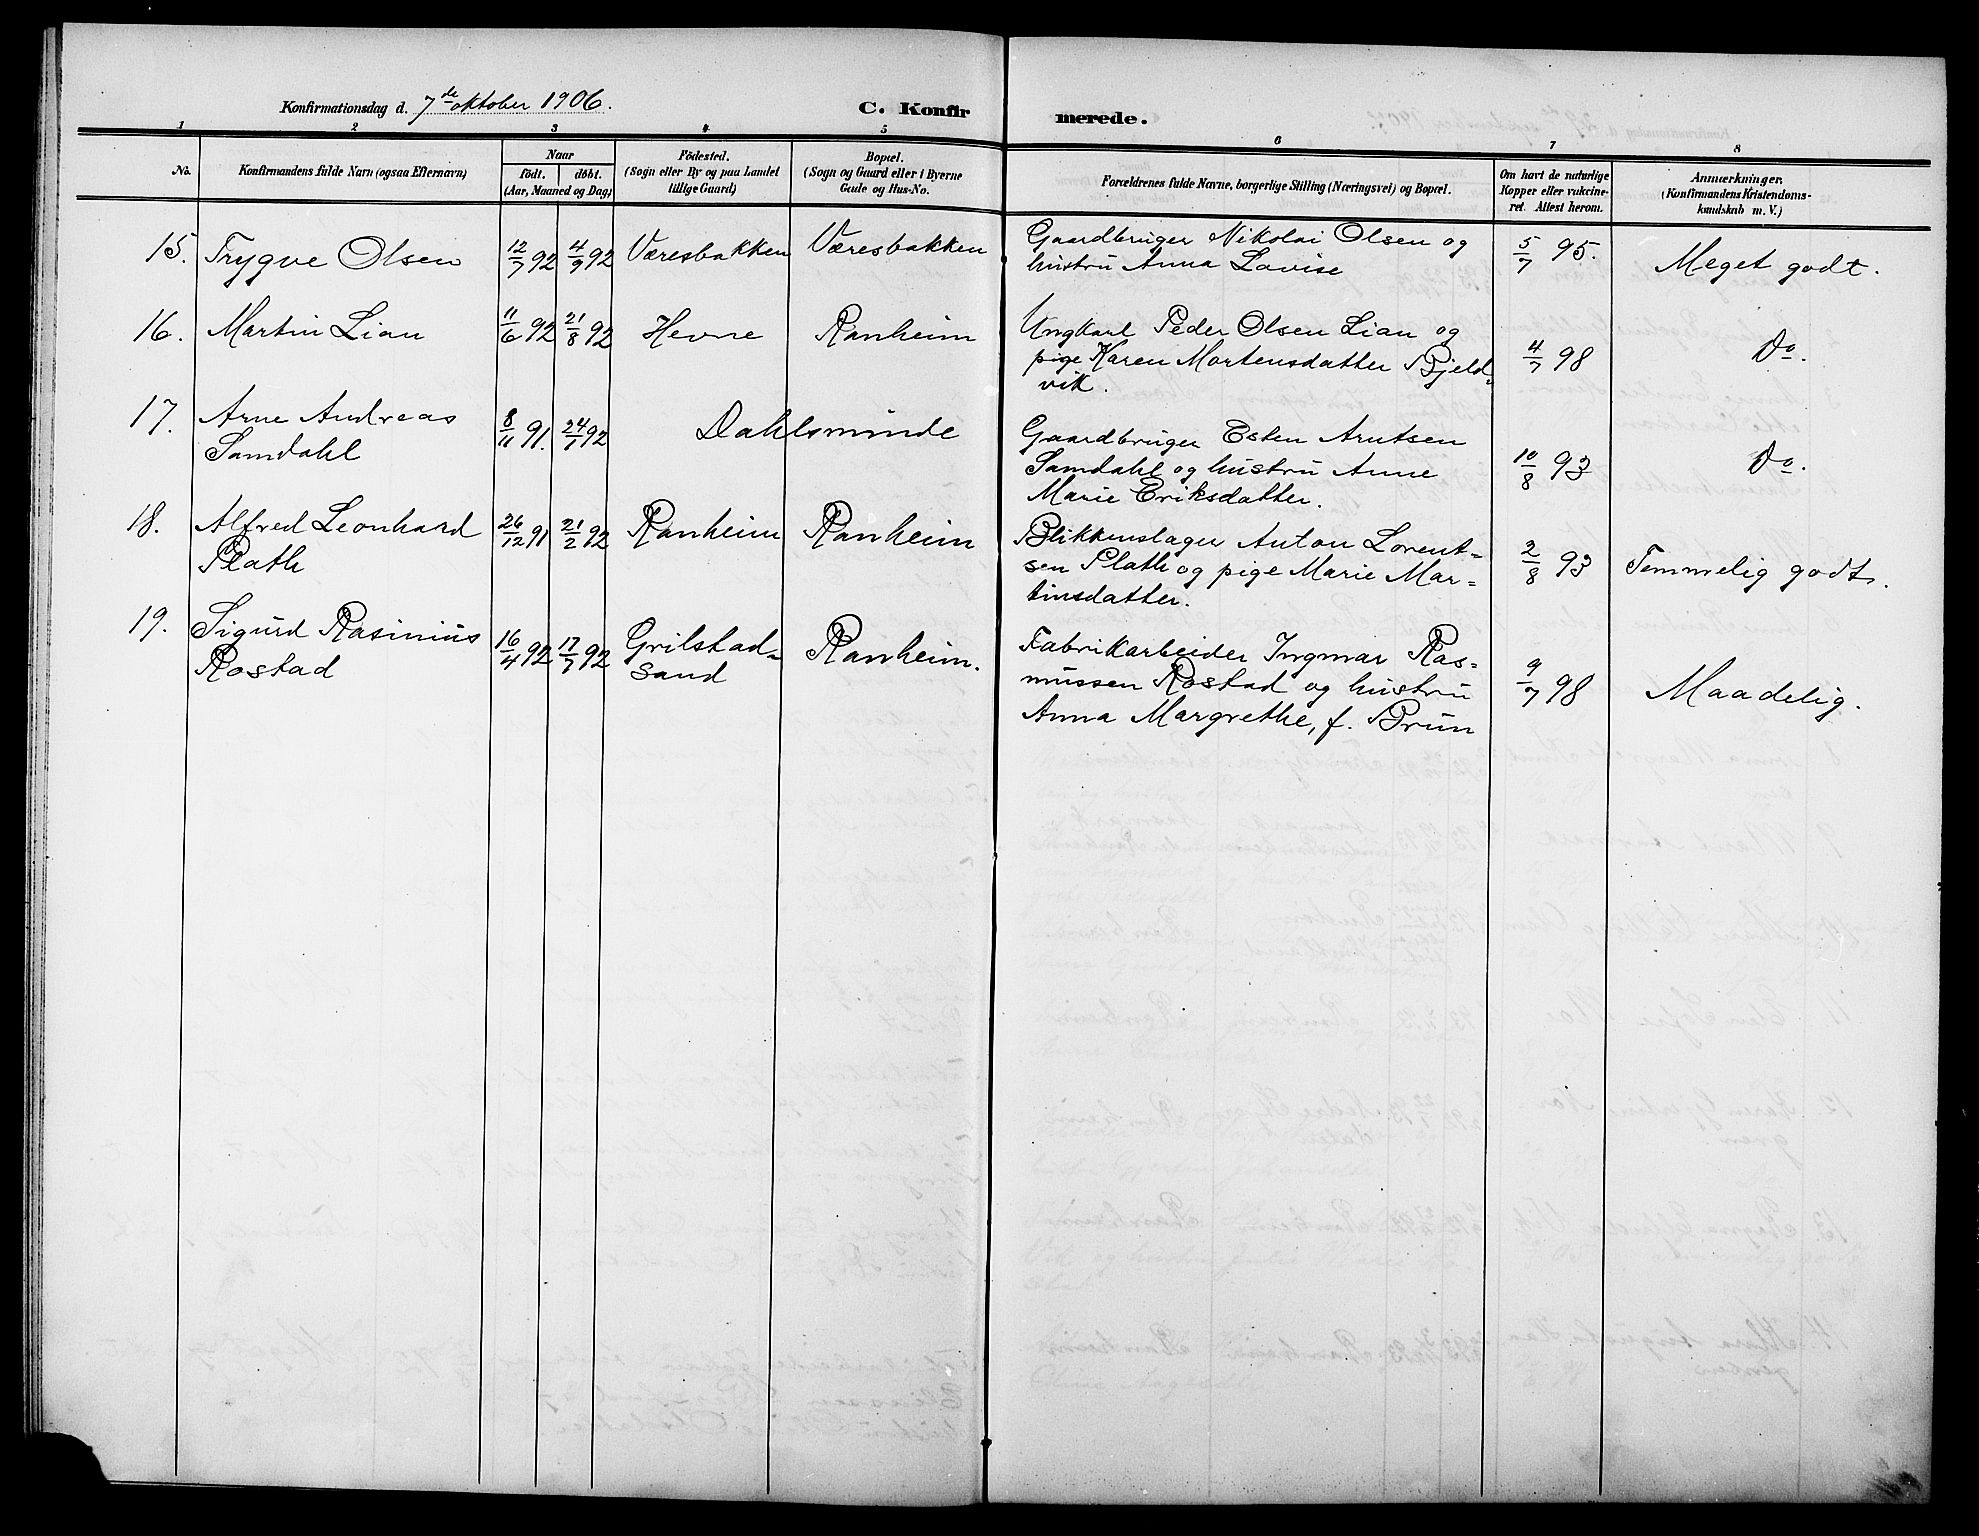 Konfirmationsdag d. 7de oktober 1906.
C. Konfirmerede.
1 2 3 4 5 6 7 8
No.
Konfirmandens fulde Navn (ogsaa Efternavn)
Naar
født. døbt.
(Aar, Maaned og Dag)
Fødested.
(Sogn eller By og paa Landet
tillige Gaard)
Bopæl.
(Sogn og Gaard eller i Byerne
Gade og Hus-No.
Forældrenes fulde Navne, borgerlige Stilling (Næringsvei) og Bopæl.
Om havt de naturlige
Kopper eller vakcine-
ret. Attest herom.
Anmærkninger.
(Konfirmandens Kristendoms-
kundskab m. V.)
15. Trygve Olsen 12/7 92 4/9 92 Væresbakken Væresbakken
Gaardbruger Nikolai Olsen og
hustru Anna Lovise
5/7 95. Meget godt.
16. Martin Lian 11/6 92 21/8 92 Hevne Ranheim
Ungkarl Peder Olsen Lian og
pige Karen Mortensdatter Bjeld-
vik.
4/7 98 Do.
17. Arne Andreas
Samdahl
8/11 91. 24/7 92 Dahlsminde
Gaardbruger Esten Arntsen
Samdahl og hustru Anne
Marie Eriksdatter.
10/8 93 Do.
18. Alfred Leonhard
Plath
26/12 91 21/2 92 Ranheim Ranheim
Blikkenslager Anton Lorent-
sen Plath og pige Marie Mar-
tinsdatter.
2/8 93 Temmelig godt.
19. Sigurd Rasinius
Rostad
16/4 92 17/7 92 Grilstad-
sand
Ranheim.
Fabrikarbeider Ingmar Ras-
mussen Rostad og hustru
Anna Margrethe, f. Brun
9/7 98 Maadelig.